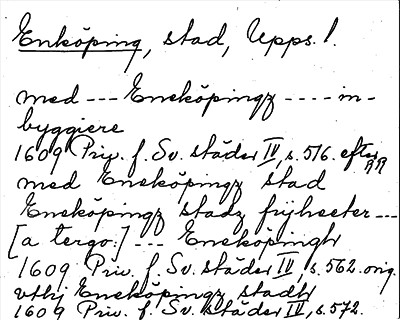 Enköping, stad, Upps. l.
med --- Eneköpingz ---- in-
byggiere
1609 Priv. f. Sv. städer IV, s. 516. efter
med Eneköpingz stad
Eneköpingz stadz frijheeter ---
[a tergo:] --- Eneköpingh
1609 Priv. f. Sv. städer IV, s. 562. orig.
vthj Eneköpingz stadh
1609 Priv. f. Sv. städer IV, s. 572.